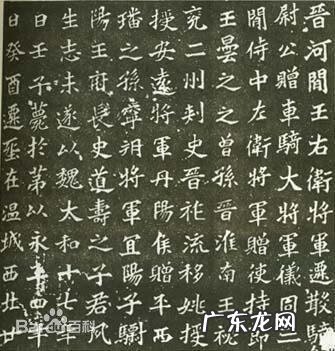 晉河間王右衛將軍遷散騎
尉公贈車騎大將軍儀同三
間侍中左衛將軍贈使持節
王曇之之曾孫晉淮南王
兗二州刾史晉祚流移姚授
授安遠將軍丹陽侯贈平西
璠之孫寧朔將軍宜陽子驎
陽王府長史道壽之子君夙
生志未遂以魏太和十七年
日壬子薨於第以永平四年
日癸酉遷塟在温城西北廿
Bai百科
广东龙网